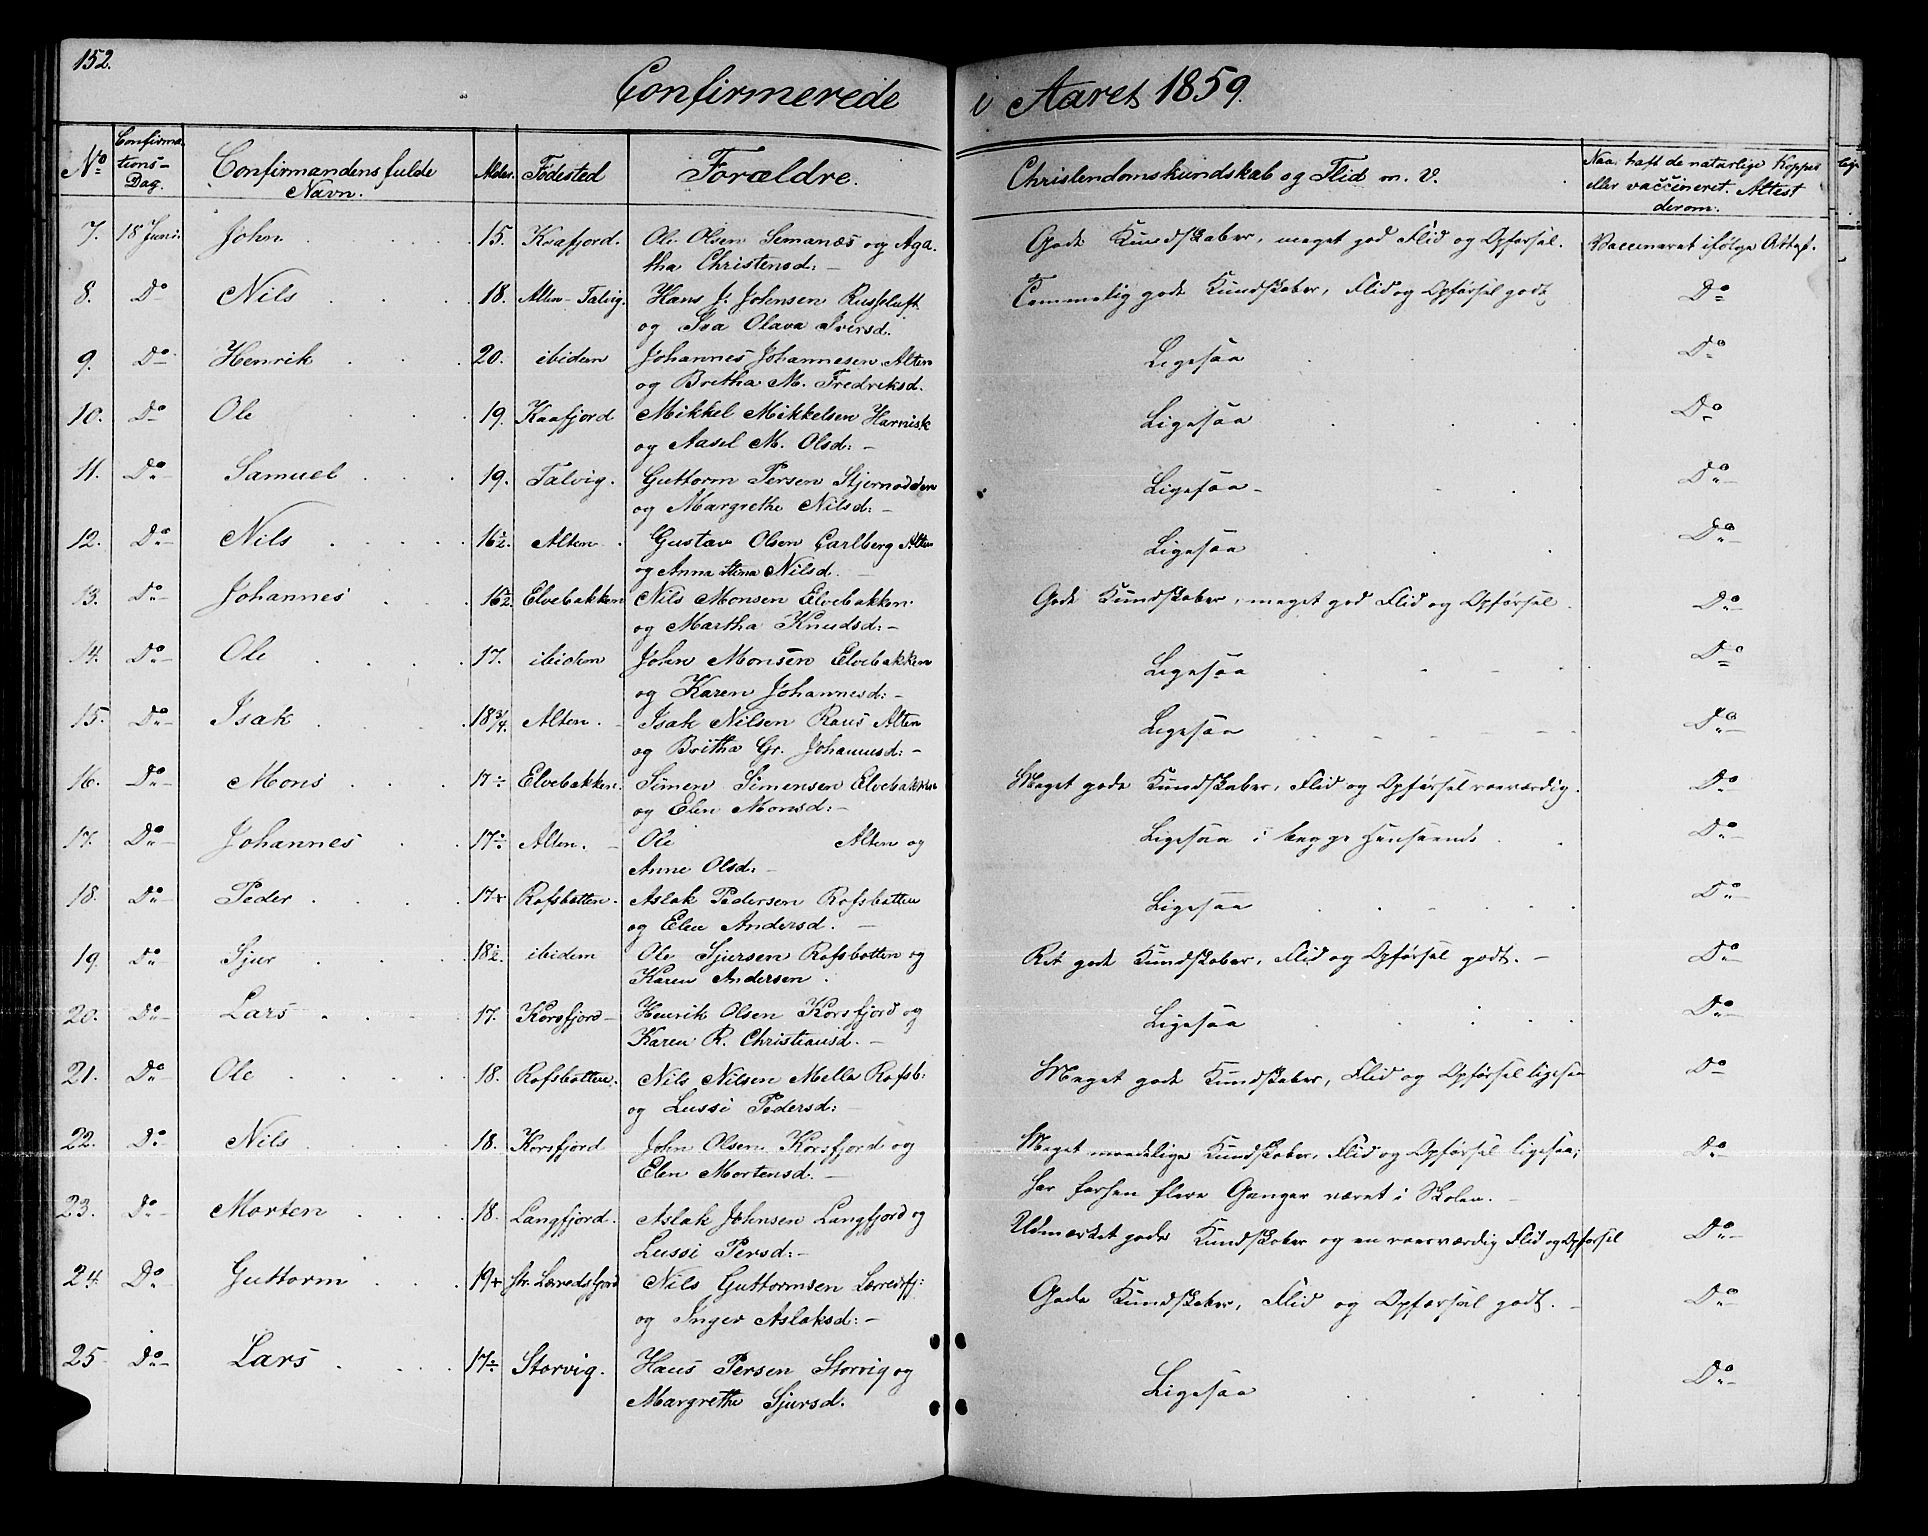 152.
Confirmerede i Aaret 1859.
No Confirmations-Dag. Confirmandens fulde Navn. Alder. Fødested Forældre. Christendomskundskab og Flid m. V. Naar haft de naturlige Kopper eller vaccineret. Attest derom.
7. 18 Juni. John 15. Kaafjord. Ole Olsen Semanæs og Aga- Gode Kundskaber, meget god Flid og Opførsel. Vaccineret ifølge Attest.
tha Christensd:
8. Do Nils 18. Alten-Talvig. Hans J. Johnsen Russeluft Temmelig gode Kundskaber, Flid og Opførsel godt Do
og Iva Olava Iversd.
9. Do Henrik 20. ibidem Johannes Johannesen Alten Ligesaa Do
og Britha M. Fredriksd.
10. Do Ole 19. Kaafjord Mikkel Mikkelsen Harnisk Ligesaa Do
og Aasel M. Olsd:
11. Do Samuel 19. Talvig. Guttorm Persen Stjernodden Ligesaa Do
og Margrethe Nilsd:
12. Do Nils 16½. Alten Gustav Olsen Carlberg Alten Ligesaa Do
og Anna Stina Nilsd.
13. Do Johannes 16½. Elvebakken Nils Monsen Elvebakken Gode Kundskaber, meget god Flid og Opførsel. Do
og Martha Knudsd:
14. Do Ole 17. ibidem John Monsen Elvebakken Ligesaa Do
og Karen Johannesd:
15. Do Isak 18¾. Alten. Isak Nilsen Raus Alten Ligesaa Do
og Britha Gr. Johannesd:
16. Do Mons 17 Elvebakken. Simen Simensen Elvebakken Meget gode Kundskaber, Flid og Opførsel roesværdig. Do
og Elen Monsd:
17. Do Johannes 17 Alten. Ole Alten og Ligesaa i begge Henseende Do
Anne Olsd:
18. Do Peder 17+ Rafsbotten. Aslak Pedersen Rafsbotten Ligesaa Do
og Elen Andersd.
19. Do Sjur 18½. ibidem Ole Sjursen Rafsbotten og Ret gode Kundskaber, Flid og Opførsel godt. Do
Karen Andersen.
20. Do Lars 17. Korsfjord Henrik Olsen Korsfjord og Ligesaa Do
Karen R. Christiansd.
21. Do Ole 18. Rafsbotten. Nils Nilsen Mella Rafsb: Meget gode Kundskaber, Flid og Opførsel ligesaa Do
og Lussi Pedersd:
22. Do Nils 18. Korsfjord John Olsen Korsfjord og Meget maadelige Kundskaber, Flid og Opførsel ligesaa; Do
Elen Mortensd. har forhen flere Ganger været i Skolen.
23. Do Morten 18. Langfjord. Aslak Johnsen Langfjord og Udmærket gode Kundskaber og en roesværdig Flid og Opførsel Do
Lussi Persd:
24. Do Guttorm 19+ Str. Lerredsfjord Nils Guttormsen Lerredsfj: Gode Kundskaber, Flid og Opførsel godt. Do
og Inger Aslaksd:
25. Do Lars 17 Storvig. Hans Persen Storvig og Ligesaa Do
Margrethe Sjursd.